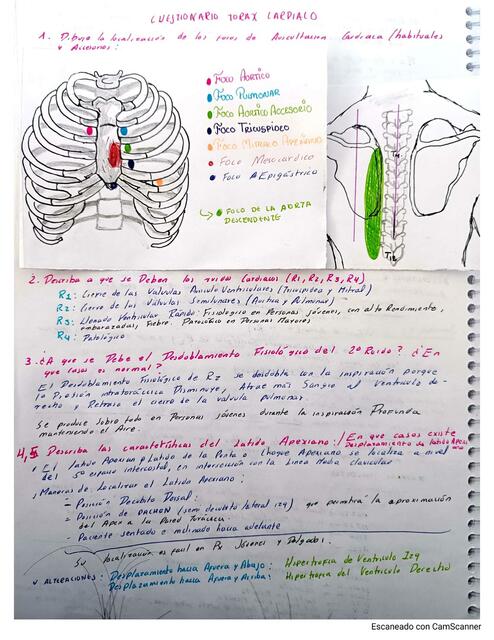 CUESTIONARIO TORAX CARDIACO
1. Dibuje la localización de los focos de Auscultación Cardiaca (habituales
y Accesorios:
FOCO AÓRTICO
FOCO PULMONAR
FOCO AÓRTICO ACCESORIO
FOCO TRICUSPIDEO
FOCO MITRAL O APEXIANO
FOCO MESOCARDICO
FOCO EPIGÁSTRICO
FOCO DE LA AORTA
DESCENDENTE
T4
T12
2. Describa a que se Deben los ruidos Cardiacos (R1, R2, R3, R4)
R1: Cierre de las Valvulas Auriculo Ventriculares (Tricuspidea y Mitral)
R2: Cierre de las Válvulas Semilunares (Aortica y Pulmonar)
R3: Llenado Ventricular Rápido: Fisiologico en Personas jóvenes, con alto Rendimiento,
embarazadas, Fiebre. Patologico en Personas Mayores
R4: Patológico
3. ¿A que se Debe el Desdoblamiento Fisiológico del 2º Ruido? ¿En
que casos es normal?
El Desdoblamiento fisiologico de R2 se desdobla con la inspiración porque
la Presión intratorácica Disminuye, Atrae más Sangre al Ventriculo de-
recho y Retrasa el cierre de la valvula pulmonar.
Se produce sobre todo en Personas jóvenes durante la inspiración Profunda
manteniendo el Aire.
4,5 Describa las características del Latido Apexiano: / En que casos existe
Desplazamiento de Latido Apexiano
El latido Apexian o Latido de la Punta o Choque Apexiano se localiza a nivel
del 5º espacio intercostal, en intersección con la Linea Media clavicular
Maneras de Localizar el Latido Apexiano:
- Posición Decúbito Dorsal:
- Posición de PACHON (semi decubito lateral izq) que permitirá la aproximación
del Apex a la Pared Torácica.
- Paciente sentado e inclinado hacia adelante
Su localización es facil en Px Jóvenes y Delgados.
ALTERACIONES: Desplazamiento hacia Afuera y Abajo: Hipertrofia de Ventriculo Izq
Desplazamiento hacia Afuera y Arriba: Hipertrofia del Ventriculo Derecho
Escaneado con CamScanner